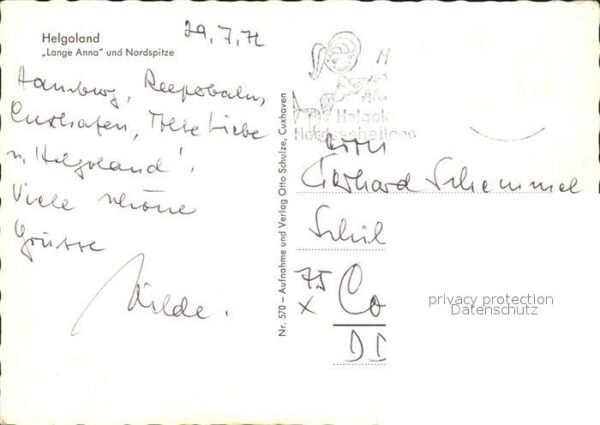 Helgoland
„Lange Anna" und Nordspitze
29.7.72
Hamburg, Reeperbahn,
Cuxhafen, Tolle Liebe
u. 'Helgoland'.
Viele schöne
Grüsse
Hilde.
Nr. 570 – Aufnahme und Verlag Otto Schulze, Cuxhaven
Helgol
Nordseeheilbad
Eberhard Schemmel
Schil
75
x Co
DD
privacy protection
Datenschutz